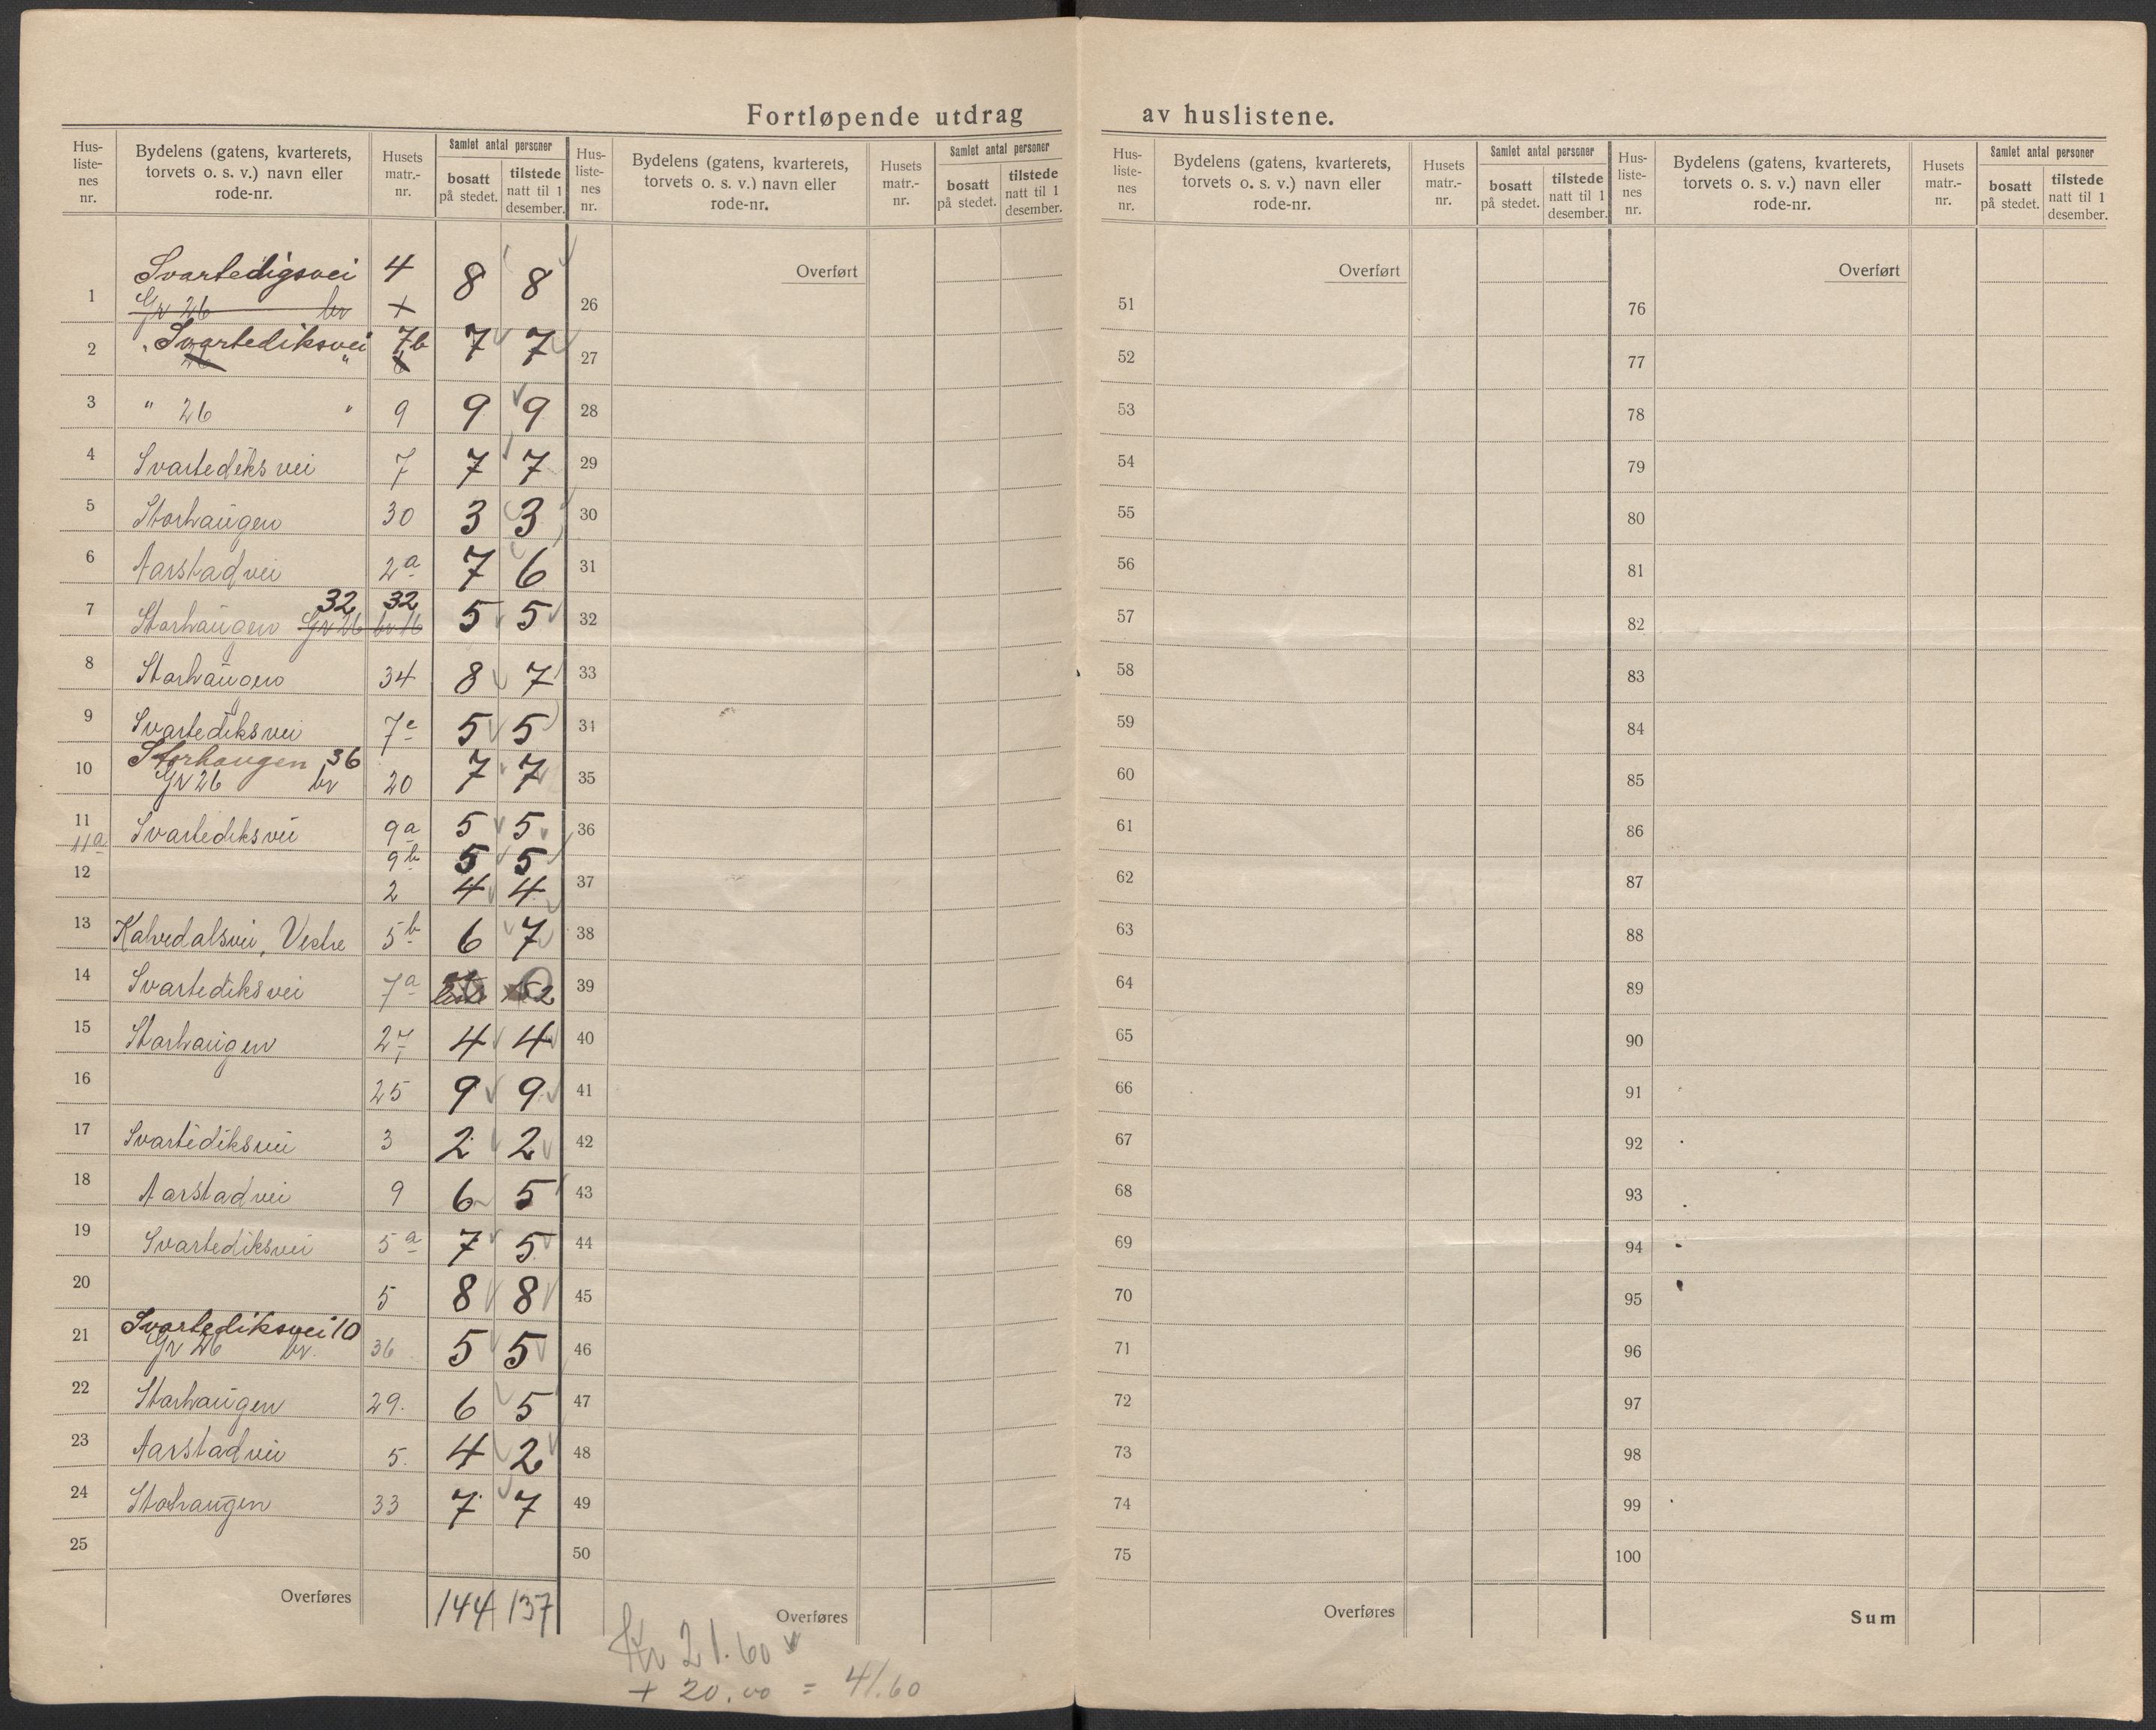 Fortløpende utdrag av huslistene.
Hus-liste-nes nr. Bydelens (gatens, kvarterets, torvets o. s. v.) navn eller rode-nr. Husets matr.-nr. Samlet antal personer bosatt på stedet. tilstede natt til 1 desember.
Hus-liste-nes nr. Bydelens (gatens, kvarterets, torvets o. s. v.) navn eller rode-nr. Husets matr.-nr. Samlet antal personer bosatt på stedet. tilstede natt til 1 desember.
Hus-liste-nes nr. Bydelens (gatens, kvarterets, torvets o. s. v.) navn eller rode-nr. Husets matr.-nr. Samlet antal personer bosatt på stedet. tilstede natt til 1 desember.
Hus-liste-nes nr. Bydelens (gatens, kvarterets, torvets o. s. v.) navn eller rode-nr. Husets matr.-nr. Samlet antal personer bosatt på stedet. tilstede natt til 1 desember.
Svartedigsvei 4 8 8
1 Gr 26 br
2 " Svartediksvei 7b 7 7
26 "
3 " 26 " 9 9 9
4 Svartediksvei 7 7 7
5 Storhaugen 30 3 3
6 Aarstadvei 2a 7 6
32 32
7 Storhaugen Gr 26 br 16 5 5
8 Storhaugen 34 8 7
9 Svartediksvei 7c 5 5
Storhaugen 36
10 Gr 26 br 20 7 7
11 Svartediksvei 9a 5 5
11a 9b 5 5
12 2 4 4
13 Kalvedalsvei, Vestre 5b 6 7
14 Svartediksvei 7a
15 Storhaugen 27 4 4
16 25 9 9
17 Svartediksvei 3 2 2
18 Aarstadvei 9 6 5
19 Svartediksvei 5a 7 5
20 5 8 8
Svartediksvei 10
21 Gr 26 br. 36 5 5
22 Storhaugen 29. 6 5
23 Aarstadvei 5. 4 2
24 Stohaugen 33 7 7
25
Overføres 144 137
Overført
26
27
28
29
30
31
32
33
34
35
36
37
38
39
40
41
42
43
44
45
46
47
48
49
50
Overføres
Kr 21.60
+ 20.00 = 41.60
Overført
51
52
53
54
55
56
57
58
59
60
61
62
63
64
65
66
67
68
69
70
71
72
73
74
75
Overføres
Overført
76
77
78
79
80
81
82
83
84
85
86
87
88
89
90
91
92
93
94
95
96
97
98
99
100
Sum